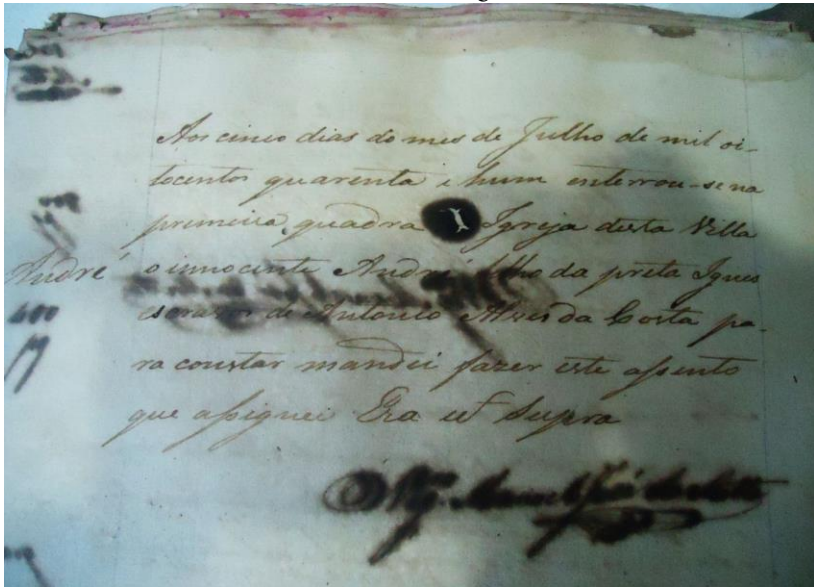 Aos cinco dias do mes de Julho de mil oi-
tocentos quarenta e hum enterrou-se na
primeira quadra Igreja desta Villa
André o innocente André filho da preta Ignes
600 escrava de Antonio Alves da Costa pa-
ra constar mandei fazer este assento
que assignei Era ut Supra
O Vigº Manoel José